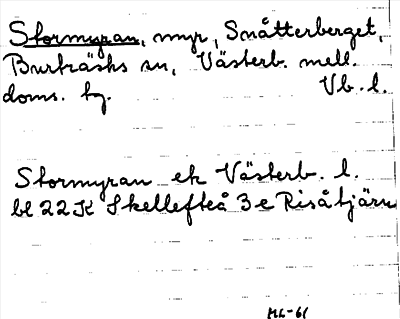 Stormyran, myr, Snåtterberget,
Burträsks sn, Västerb. mell.
doms. tg. Vb. l.
Stormyran ek Västerb. l.
bl 22K Skellefteå 3e Risåtjärn
ML-61